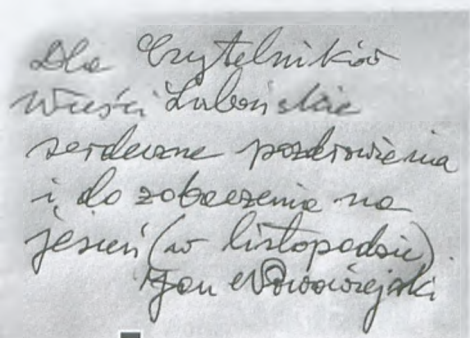 Dla Czytelników
Wieści Lubońskie
serdeczne pozdrowienia
i do zobaczenia na
jesień (w listopadzie).
Jan Nowowiejski